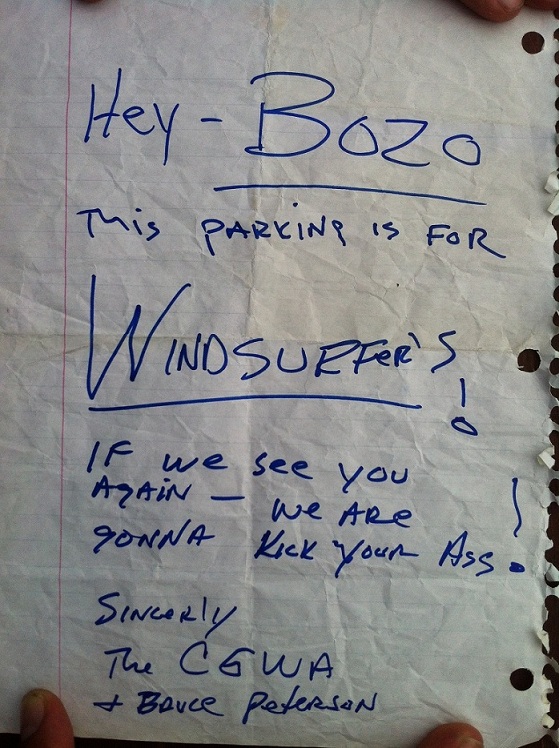 Hey - Bozo
This PARKING is FOR
WINDSURFER'S!
IF we see you
AgAiN — we ARE
gonnA Kick your Ass!
Sincerly
The CGWA
+ Bruce Peterson